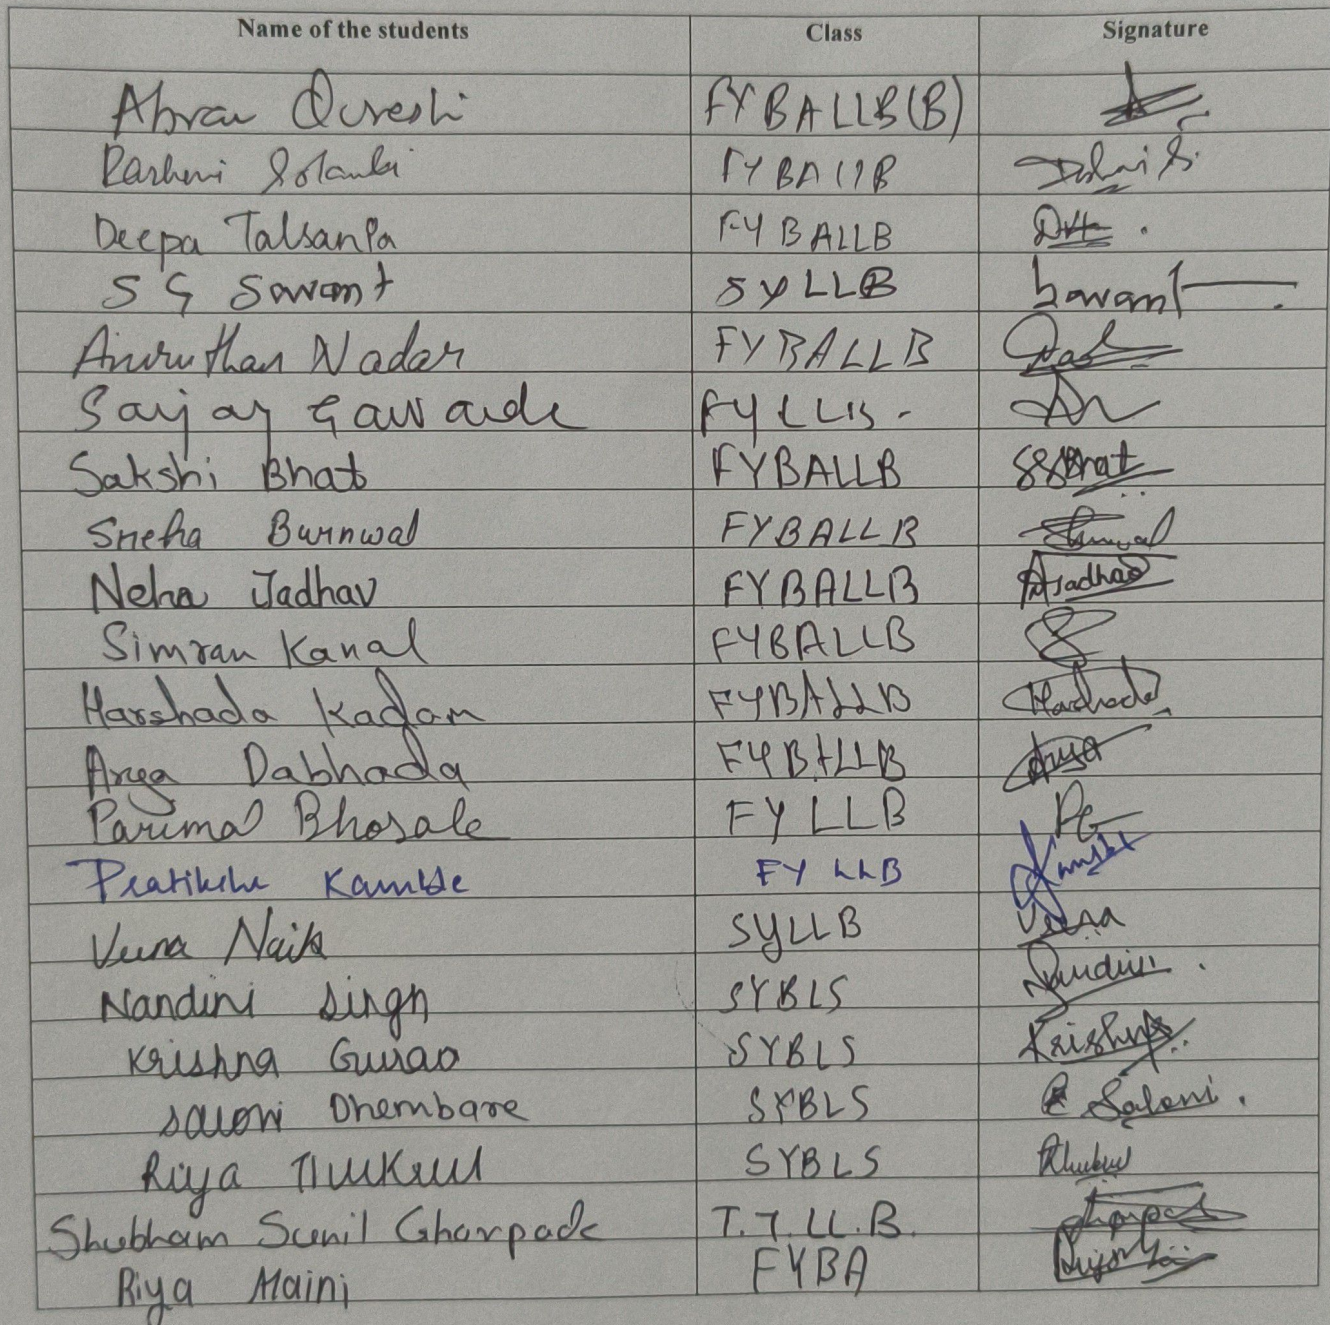 Name of the students Class Signature
Abrar Qureshi FYBALLB(B)
Rashmi Solanki FYBALLB
Deepa Talsania FYBALLB
S G Sawant SYLLB Sawant
Nadar FYBALLB
Gawade FYLLB.
Sakshi Bhat FYBALLB SSBhat
Sneha Burnwal FYBALLB
Neha Jadhav FYBALLB Jadhav
Simran Kanal FYBALLB
Harshada Kadam FYBALLB Harshada
Arya Dabhada FYBALLB Arya
Parimal Bhosale FY LLB
Kamble FY LLB
Veena Naik SYLLB Veena
Nandini Singh SYBLS Nandini
Krishna Gurao SYBLS Krishna
Saloni Dhembare SYBLS Saloni.
Riya Thukrul SYBLS
Shubham Sunil Ghorpade T.Y.LL.B.
Riya Maini FYBA